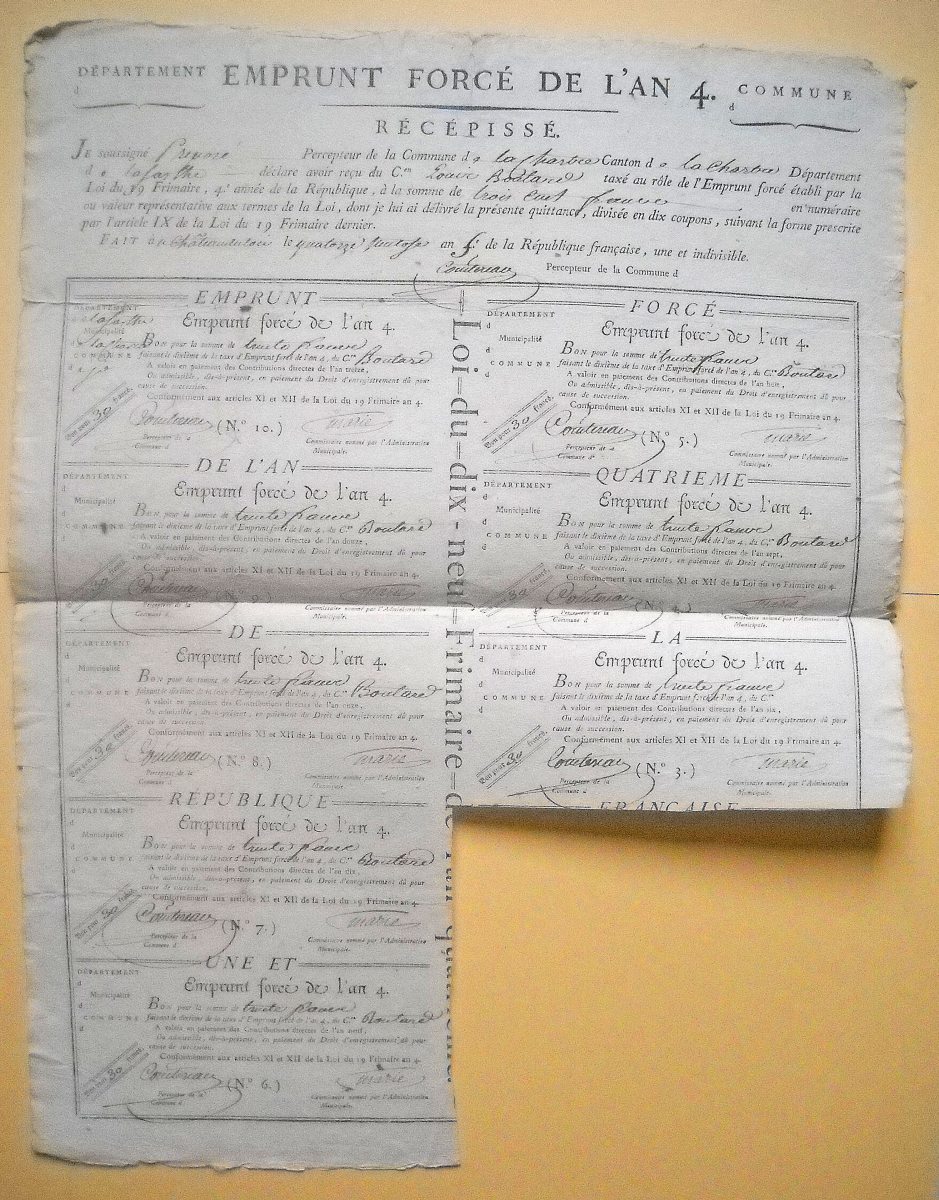 DÉPARTEMENT
d
EMPRUNT FORCÉ DE L'AN 4.
COMMUNE
d
RÉCÉPISSÉ.
JE soussigné Percepteur de la Commune d e la chartre Canton d e la chartre Département
d e lasarthe déclare avoir reçu du C.en Boutard taxé au rôle de l'Emprunt forcé établi par la
Loi du 19 Frimaire, 4.e année de la République, à la somme de trois cent francs en numéraire
ou valeur representative aux termes de la Loi, dont je lui ai délivré la présente quittance, divisée en dix coupons, suivant la forme prescrite
par l'article IX de la Loi du 19 Frimaire dernier.
FAIT le quatorze an de la République française, une et indivisible.
Percepteur de la Commune d
EMPRUNT
DÉPARTEMENT
d lasarthe
Municipalité
d
COMMUNE
d
Emprunt forcé de l'an 4.
BON pour la somme de trente francs
faisant le dixième de la taxe d'Emprunt forcé de l'an 4, du C.en Boutard
A valoir en paiement des Contributions directes de l'an treize,
Ou admissible, dès-à-présent, en paiement du Droit d'enregistrement dû pour
cause de succession.
Conformément aux articles XI et XII de la Loi du 19 Frimaire an 4.
Bon pour 30 francs.
(N.° 10.)
marie
Percepteur de la
Commune d
Commissaire nommé par l'Administration
Municipale.
DE L'AN
DÉPARTEMENT
d
Municipalité
d
COMMUNE
d
Emprunt forcé de l'an 4.
BON pour la somme de trente francs
faisant le dixième de la taxe d'Emprunt forcé de l'an 4, du C.en Boutard
A valoir en paiement des Contributions directes de l'an douze,
Ou admissible, dès-à-présent, en paiement du Droit d'enregistrement dû pour
cause de succession.
Conformément aux articles XI et XII de la Loi du 19 Frimaire an 4.
marie
Percepteur de la
Commune d
Commissaire nommé par l'Administration
Municipale.
DE
DÉPARTEMENT
d
Municipalité
d
COMMUNE
d
Emprunt forcé de l'an 4.
BON pour la somme de trente francs
faisant le dixième de la taxe d'Emprunt forcé de l'an 4, du C.en Boutard
A valoir en paiement des Contributions directes de l'an onze,
Ou admissible, dès-à-présent, en paiement du Droit d'enregistrement dû pour
cause de succession.
Conformément aux articles XI et XII de la Loi du 19 Frimaire an 4.
Bon pour 30 francs.
(N.° 8.)
marie
Percepteur de la
Commune d
Commissaire nommé par l'Administration
Municipale.
RÉPUBLIQUE
DÉPARTEMENT
d
Municipalité
d
COMMUNE
d
Emprunt forcé de l'an 4.
BON pour la somme de trente francs
faisant le dixième de la taxe d'Emprunt forcé de l'an 4, du C.en Boutard
A valoir en paiement des Contributions directes de l'an dix,
Ou admissible, dès-à-présent, en paiement du Droit d'enregistrement dû pour
cause de succession.
Conformément aux articles XI et XII de la Loi du 19 Frimaire an 4.
Bon pour 30 francs.
(N.° 7.)
marie
Percepteur de la
Commune d
Commissaire nommé par l'Administration
Municipale.
UNE ET
DÉPARTEMENT
d
Municipalité
d
COMMUNE
d
Emprunt forcé de l'an 4.
BON pour la somme de trente francs
faisant le dixième de la taxe d'Emprunt forcé de l'an 4, du C.en Boutard
A valoir en paiement des Contributions directes de l'an neuf,
Ou admissible, dès-à-présent, en paiement du Droit d'enregistrement dû pour
cause de succession.
Conformément aux articles XI et XII de la Loi du 19 Frimaire an 4.
Bon pour 30 francs.
(N.° 6.)
marie
Percepteur de la
Commune d
Commissaire nommé par l'Administration
Municipale.
Loi du dix-neuf Frimaire de l'an quatrième.
FORCÉ
DÉPARTEMENT
d
Municipalité
d
COMMUNE
d
Emprunt forcé de l'an 4.
BON pour la somme de trente francs
faisant le dixième de la taxe d'Emprunt forcé de l'an 4, du C.en Boutard
A valoir en paiement des Contributions directes de l'an huit,
Ou admissible, dès-à-présent, en paiement du Droit d'enregistrement dû pour
cause de succession.
Conformément aux articles XI et XII de la Loi du 19 Frimaire an 4.
Bon pour 30 francs.
(N.° 5.)
marie
Percepteur de la
Commune d
Commissaire nommé par l'Administration
Municipale.
QUATRIEME
DÉPARTEMENT
d
Municipalité
d
COMMUNE
d
Emprunt forcé de l'an 4.
BON pour la somme de trente francs
faisant le dixième de la taxe d'Emprunt forcé de l'an 4, du C.en Boutard
A valoir en paiement des Contributions directes de l'an sept,
Ou admissible, dès-à-présent, en paiement du Droit d'enregistrement dû pour
cause de succession.
Conformément aux articles XI et XII de la Loi du 19 Frimaire an 4.
(N.° 4.)
marie
Percepteur de la
Commune d
Commissaire nommé par l'Administration
Municipale.
LA
DÉPARTEMENT
d
Municipalité
d
COMMUNE
d
Emprunt forcé de l'an 4.
BON pour la somme de trente francs
faisant le dixième de la taxe d'Emprunt forcé de l'an 4, du C.en
A valoir en paiement des Contributions directes de l'an six,
Ou admissible, dès-à-présent, en paiement du Droit d'enregistrement dû pour
cause de succession.
Conformément aux articles XI et XII de la Loi du 19 Frimaire an 4.
Bon pour 30 francs.
(N.° 3.)
marie
Percepteur de la
Commune d
Commissaire nommé par l'Administration
Municipale.
FRANÇAISE